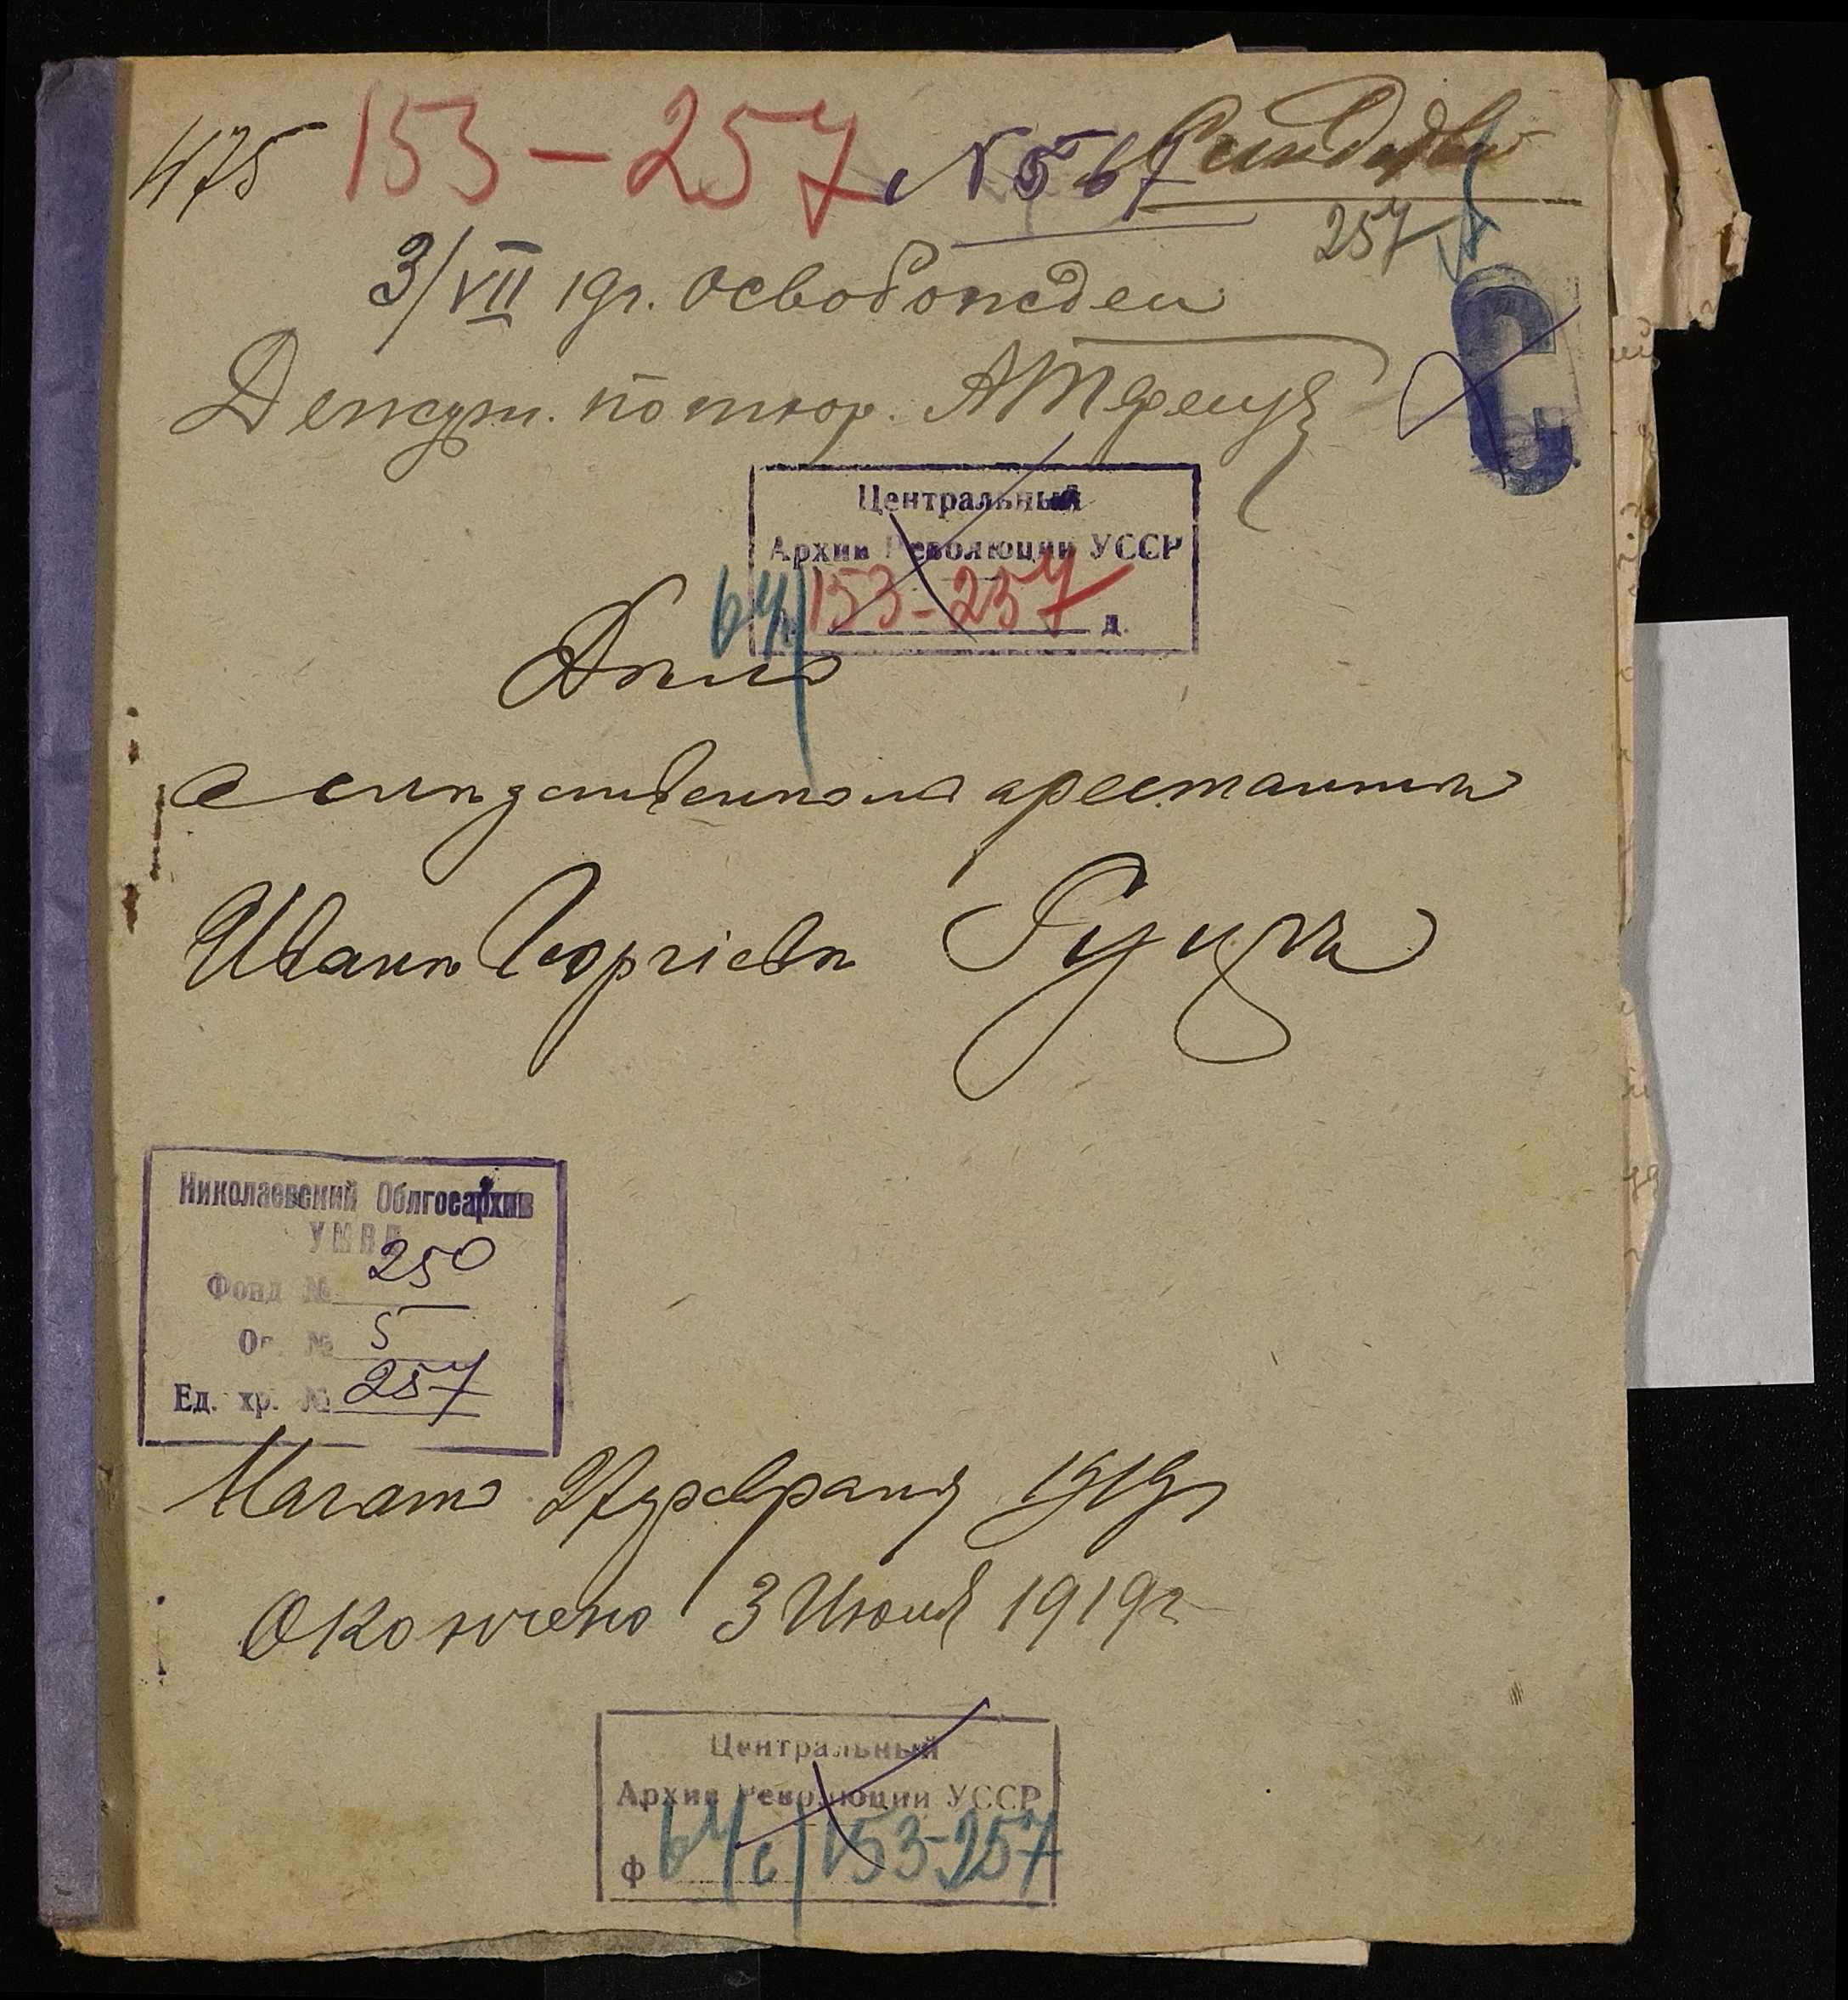 475 153-257 № 567
257
3/VII 19г. освобожден
Дежурн. по тюр.
С
Центральный
Архив Революции УССР
64/ 153-257 д.
Дѣло
о слѣдственномъ арестантѣ
Иванъ Георгіевъ Гуцкъ
Николаевский Облгосархив
УМВД
Фонд № 250
Оп. № 5
Ед. хр. № 257
Начато 27 февраля 1919г
Окончено 3 Июля 1919г
Центральный
Архив Революции УССР
ф 64/с/153-257